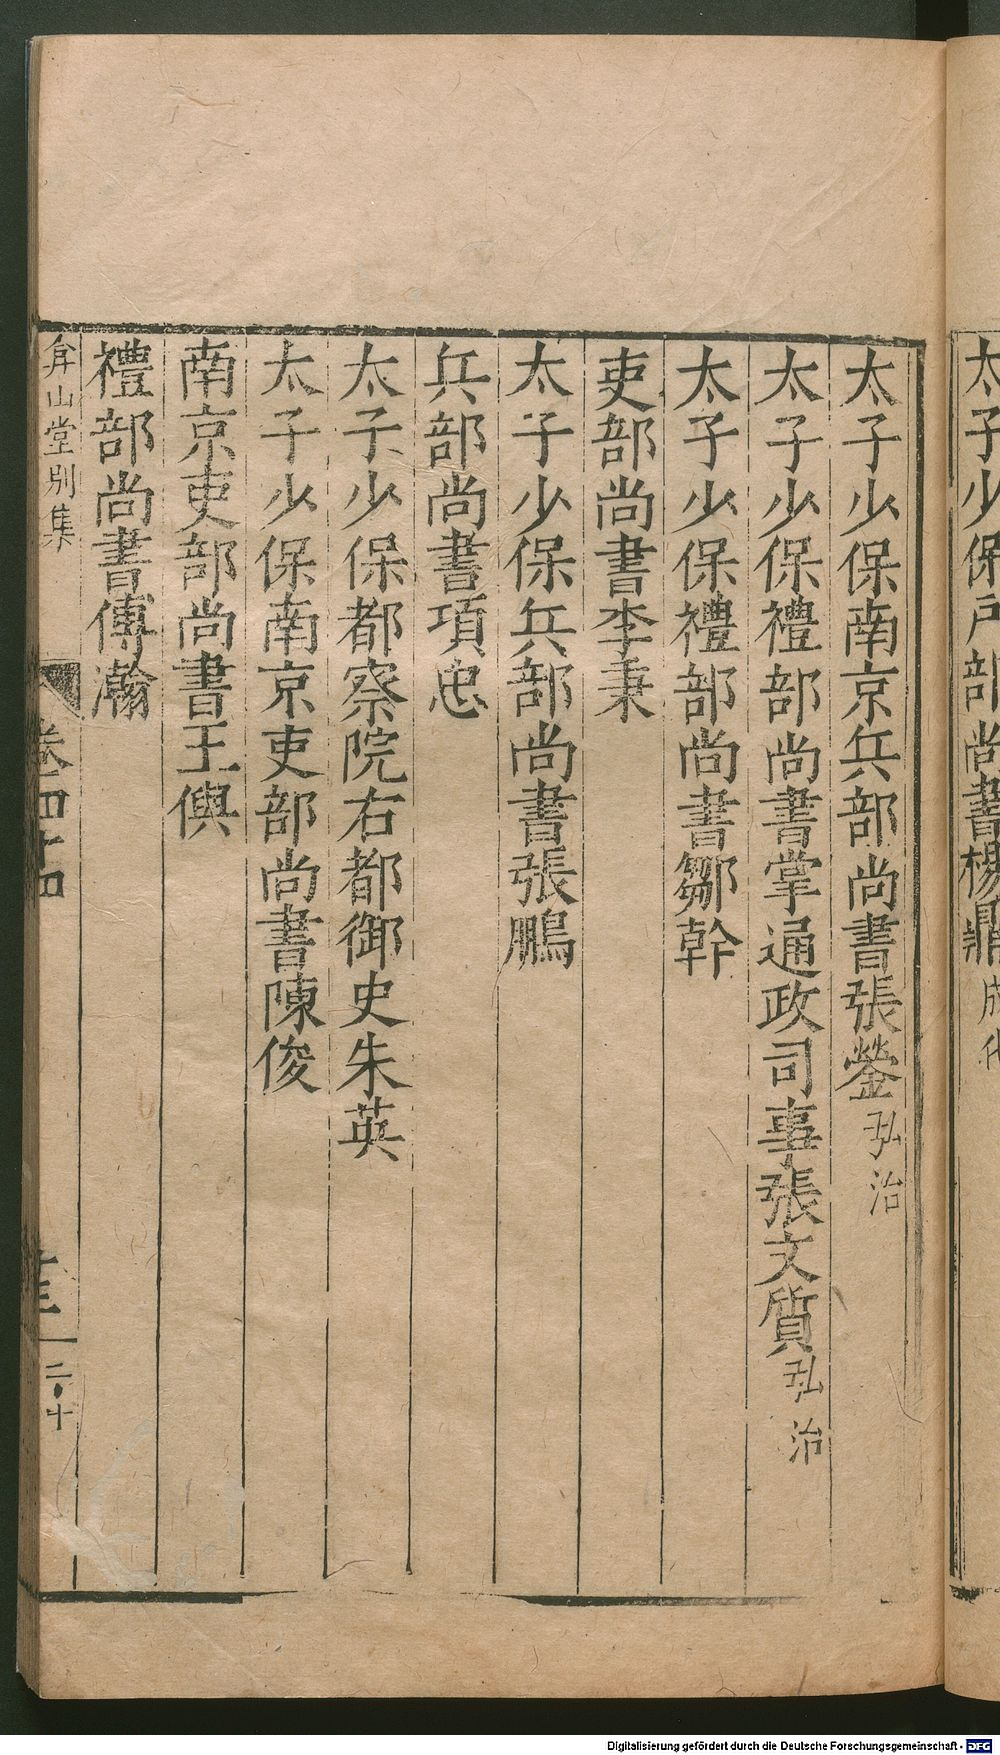 太子少保戶部尚書楊鼎成化
太子少保南京兵部尚書張鎣弘治
太子少保禮部尚書掌通政司事張文質弘治
太子少保禮部尚書鄒幹
吏部尚書李秉
太子少保兵部尚書張鵬
兵部尚書項忠
太子少保都察院右都御史朱英
太子少保南京吏部尚書陳俊
南京吏部尚書王㒜
禮部尚書傅瀚
弇山堂別集
卷四十四
二十
Digitalisierung gefördert durch die Deutsche Forschungsgemeinschaft - DFG